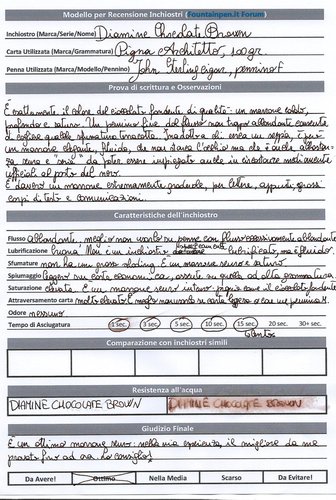 Modello per Recensione Inchiostri (Fountainpen.it Forum)
Inchiostro (Marca/Serie/Nome) Diamine Chocolate Brown
Carta Utilizzata (Marca/Grammatura) Pigna Architetto, 100gr
Penna Utilizzata (Marca/Modello/Pennino) John Sterling, pennino f
Prova di scrittura e Osservazioni
È esattamente il colore del cioccolato fondente di qualità: un marrone caldo,
profondo e saturo. Un pennino fine dal flusso non troppo abbondante consente
di un marrone elegante, fluido, che non stanca l'occhio ma che è anche abbastan-
za serio e "scuro" da poter essere impiegato anche in circostanze moderatamente
ufficiali al posto del nero.
È davvero un marrone estremamente gradevole, per lettere, appunti, grossi
corpi di testo e comunicazioni.
Caratteristiche dell'inchiostro
Flusso Abbondante, meglio non usarlo su penne con flusso eccessivamente abbondante
Lubrificazione buona. Non è un inchiostro lubrificato, ma è fluido.
Sfumature non ha un grosso shading. È un marrone scuro e saturo
Spiumaggio leggero su carta economica, assente su quella ad alta grammatura
Saturazione elevata. È un marrone scuro intenso, pigna come il cioccolato fondente
Attraversamento carta molto elevato. È meglio non usarlo su carta leggera o con un pennino M.
Odore nessuno
Tempo di Asciugatura 1 sec. 3 sec. 5 sec. 10 sec. 15 sec. 20 sec. 30+ sec.
Comparazione con inchiostri simili
Resistenza all'acqua
DIAMINE CHOCOLATE BROWN DIAMINE CHOCOLATE BROWN
Giudizio Finale
È un ottimo marrone scuro: nella mia esperienza, il migliore da me
provato fino ad ora. Lo consiglio!
Da Avere! Ottimo Nella Media Scarso Da Evitare!